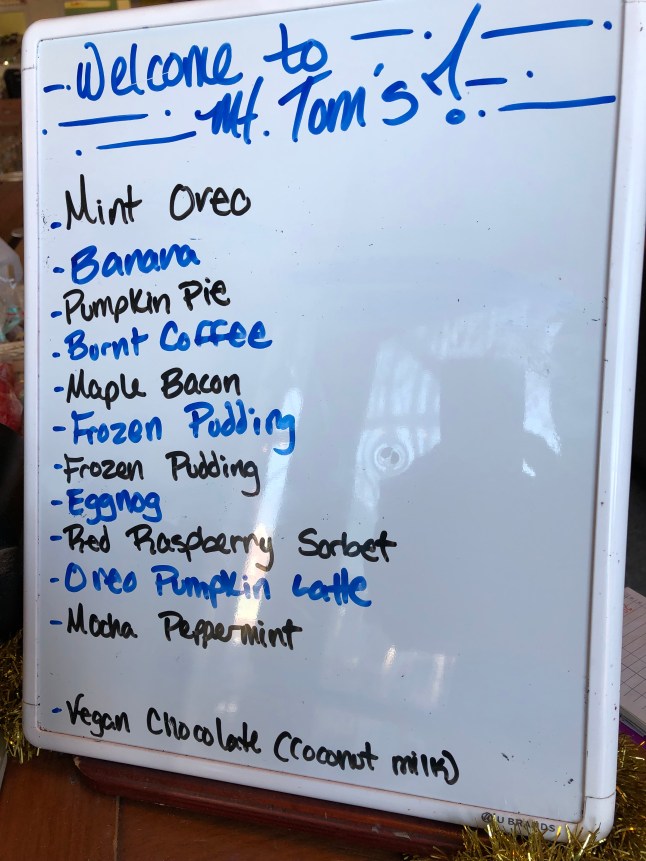 - Welcome to
Mt. Tom's!
- Mint Oreo
- Banana
- Pumpkin Pie
- Burnt Coffee
- Maple Bacon
- Frozen Pudding
- Frozen Pudding
- Eggnog
- Red Raspberry Sorbet
- Oreo Pumpkin Latte
- Mocha Peppermint
- Vegan Chocolate (coconut milk)
U BRANDS